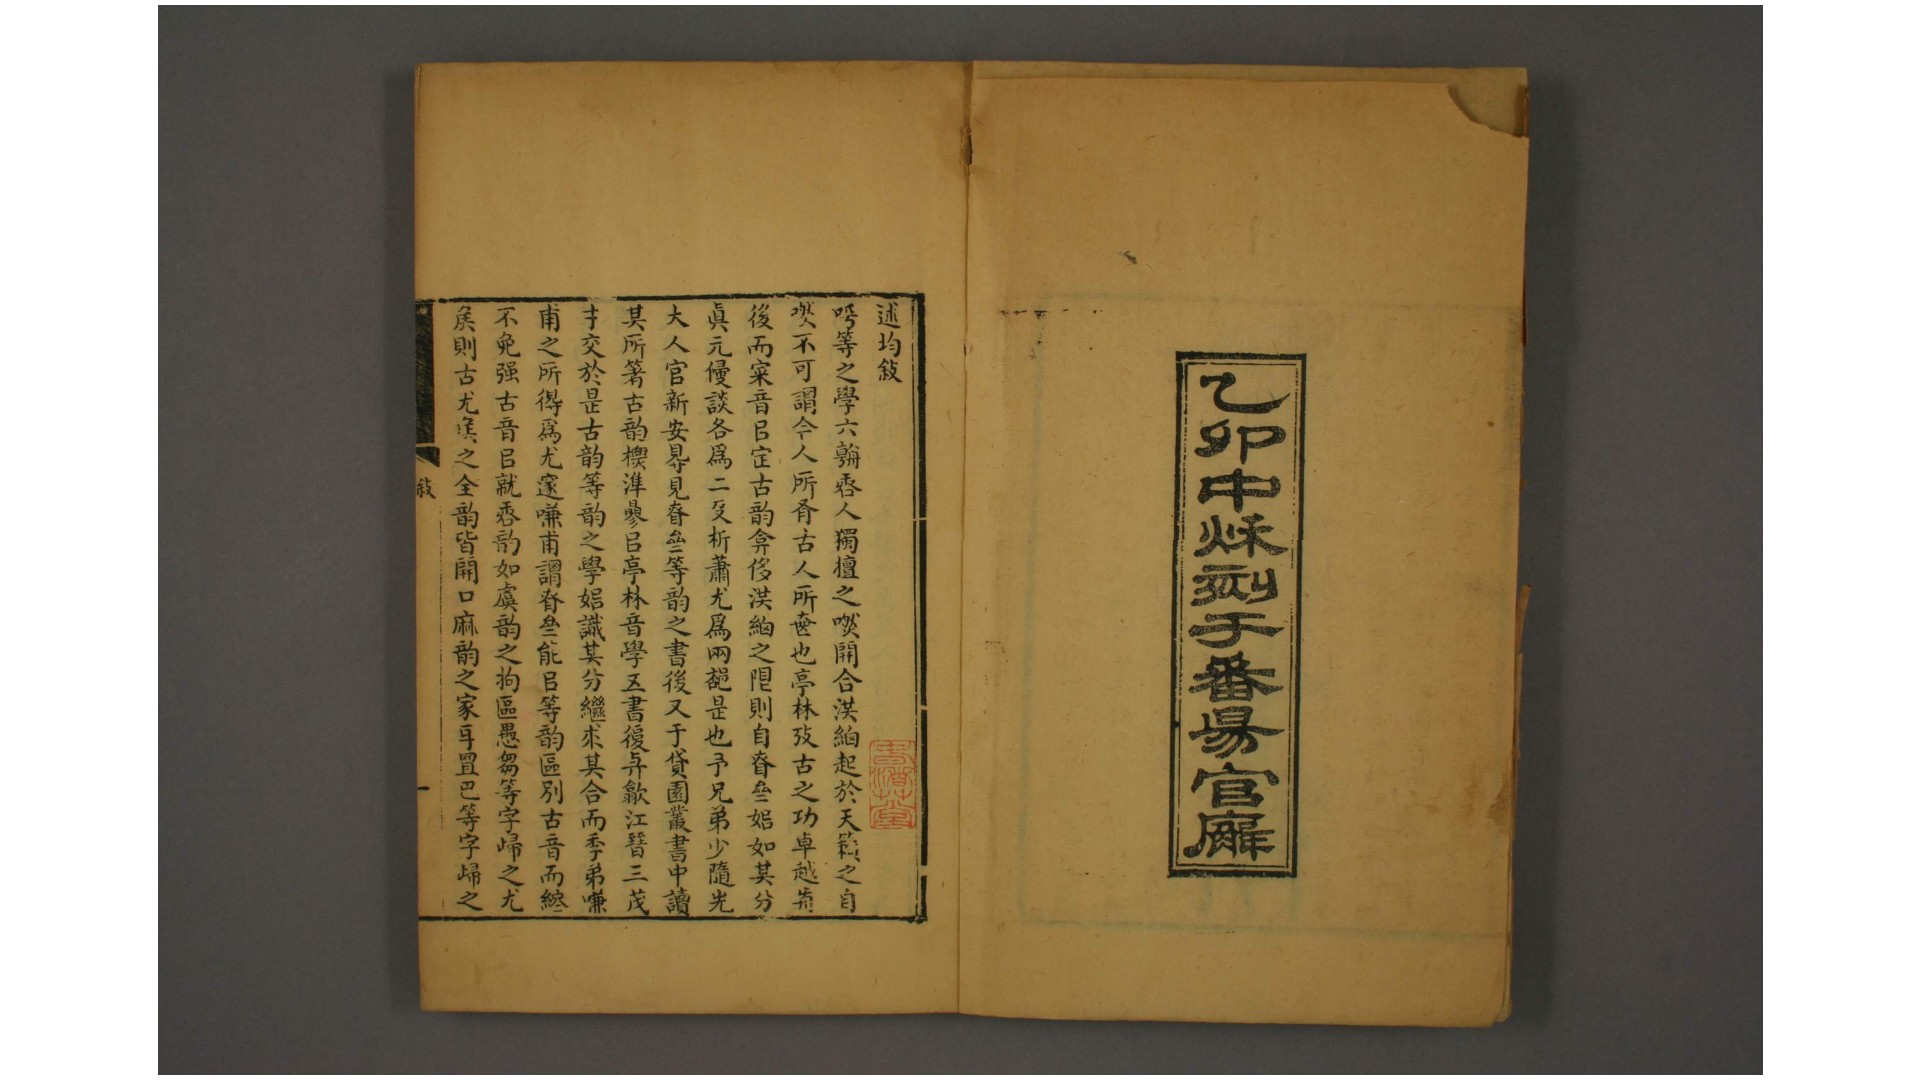 乙卯中秌刻于番昜官廨
述均敍
等之學六朝人獨擅之開合洪細起於天籟之自
不可謂今人所有古人所無也亭林攷古之功卓越前
後而案音㠯定古韵弇侈洪細之限則自眘㕘始如其分
眞元僈談各爲二攴析蕭尤爲网是也予兄弟少隨先
大人官新安見眘㕘等韵之書後又于貸園叢書中讀
其所箸古韵準㠯亭林音學五書復弆歙江晉三茂
才交於是古韵等韵之學始識其分繼求其合而季弟嗛
甫之所得爲尤邃嗛甫謂眘㕘能㠯等韵區別古音而
不免强古音㠯就韵如虞韵之拘區愚芻等字歸之尤
矦則古尤矦之全韵皆開口麻韵之家巴等字歸之
敍
一